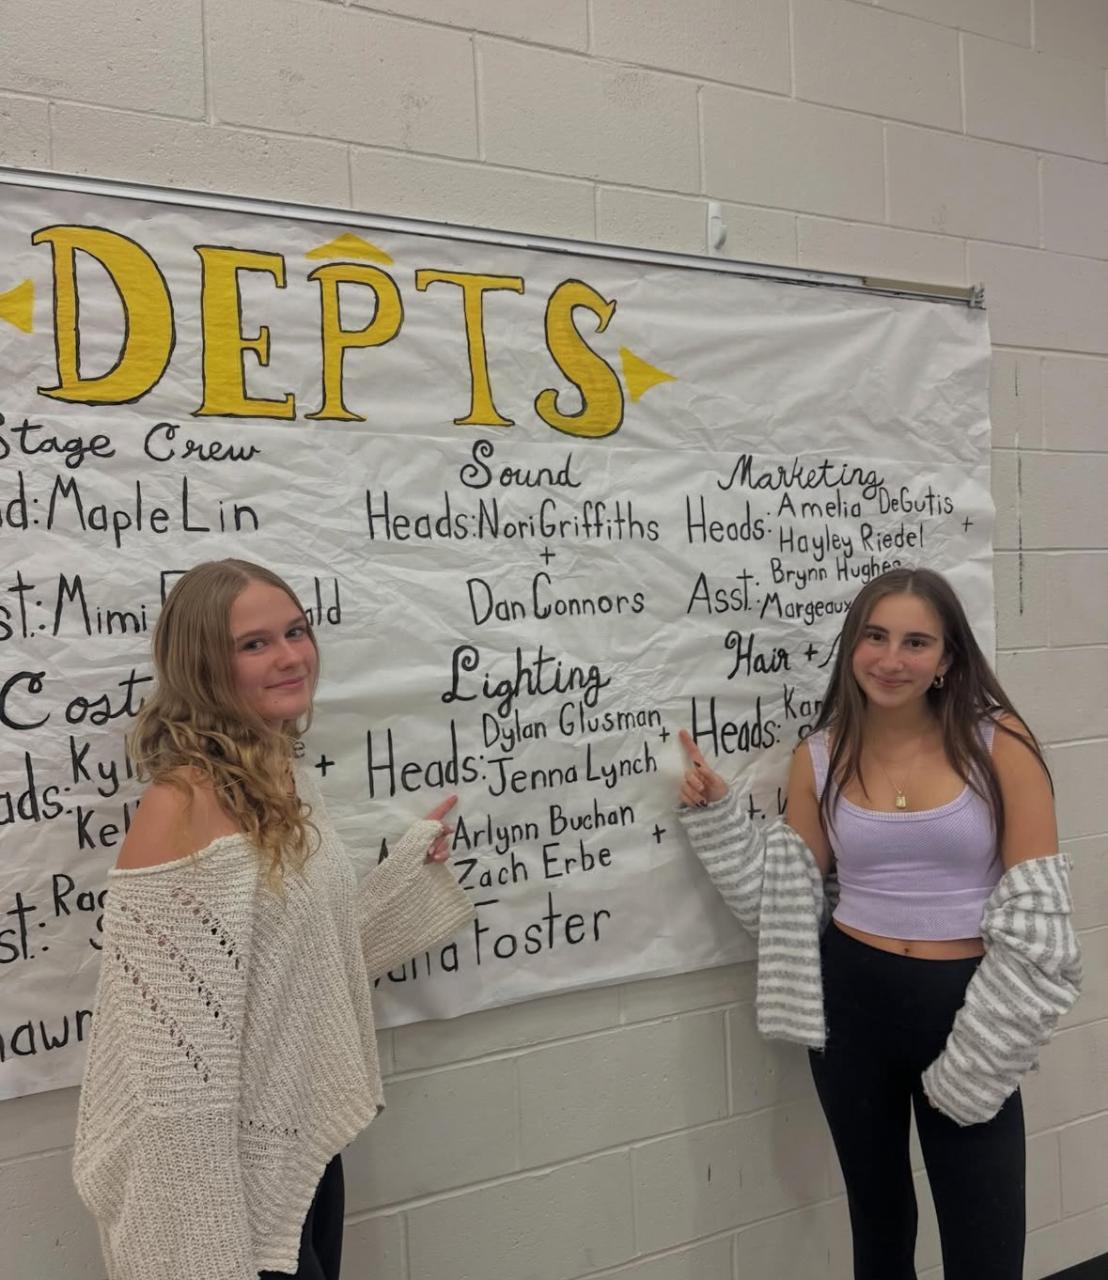 DEPTS
Stage Crew
Maple Lin
Mimi
Cost
Kyl
+
Kel
Rag
Sound
Heads: Nori Griffiths
+
Dan Connors
Lighting
Heads: Dylan Glusman +
Jenna Lynch
Arlynn Buchan +
Zach Erbe
Foster
Marketing
Heads: Amelia DeGutis +
Hayley Riedel
Asst: Brynn Hughes
Margeaux
Hair +
Heads: Kar